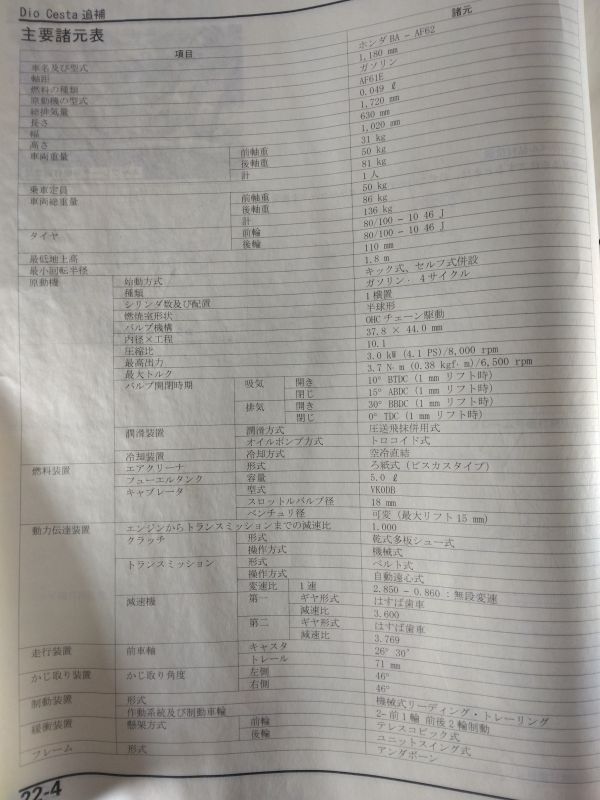 Dio Cesta 追補
主要諸元表
項目 諸元
車名及び型式 ホンダ BA - AF62
軸距 1,180 mm
燃料の種類 ガソリン
原動機の型式 AF61E
総排気量 0.049 ℓ
長さ 1,720 mm
幅 630 mm
高さ 1,020 mm
車両重量 前軸重 31 kg
後軸重 50 kg
計 81 kg
乗車定員 1 人
車両総重量 前軸重 50 kg
後軸重 86 kg
計 136 kg
タイヤ 前輪 80/100 - 10 46 J
後輪 80/100 - 10 46 J
最低地上高 110 mm
最小回転半径 1.8 m
原動機 始動方式 キック式、セルフ式併設
種類 ガソリン・4 サイクル
シリンダ数及び配置 1 横置
燃焼室形状 半球形
バルブ機構 OHC チェーン駆動
内径×工程 37.8 × 44.0 mm
圧縮比 10.1
最高出力 3.0 kW (4.1 PS)/8,000 rpm
最大トルク 3.7 N・m (0.38 kgf・m)/6,500 rpm
バルブ開閉時期 吸気 開き 10° BTDC (1 mm リフト時)
閉じ 15° ABDC (1 mm リフト時)
排気 開き 30° BBDC (1 mm リフト時)
閉じ 0° TDC (1 mm リフト時)
潤滑装置 潤滑方式 圧送飛抹併用式
オイルポンプ方式 トロコイド式
冷却装置 冷却方式 空冷直結
燃料装置 エアクリーナ 形式 ろ紙式 (ビスカスタイプ)
フューエルタンク 容量 5.0 ℓ
キャブレータ 型式 VK0DB
スロットルバルブ径 18 mm
ベンチュリ径 可変 (最大リフト 15 mm)
動力伝達装置 エンジンからトランスミッションまでの減速比 1.000
クラッチ 形式 乾式多板シュー式
操作方式 機械式
トランスミッション 形式 ベルト式
操作方式 自動遠心式
変速比 1 速 2.850 - 0.860 : 無段変速
減速機 第一 ギヤ形式 はすば歯車
減速比 3.600
第二 ギヤ形式 はすば歯車
減速比 3.769
走行装置 前車軸 キャスタ 26° 30′
トレール 71 mm
かじ取り装置 かじ取り角度 左側 46°
右側 46°
制動装置 形式 機械式リーディング・トレーリング
作動系統及び制動車輪 2- 前 1 輪 前後 2 輪制動
緩衝装置 懸架方式 前輪 テレスコピック式
後輪 ユニットスイング式
フレーム 形式 アンダボーン
22-4